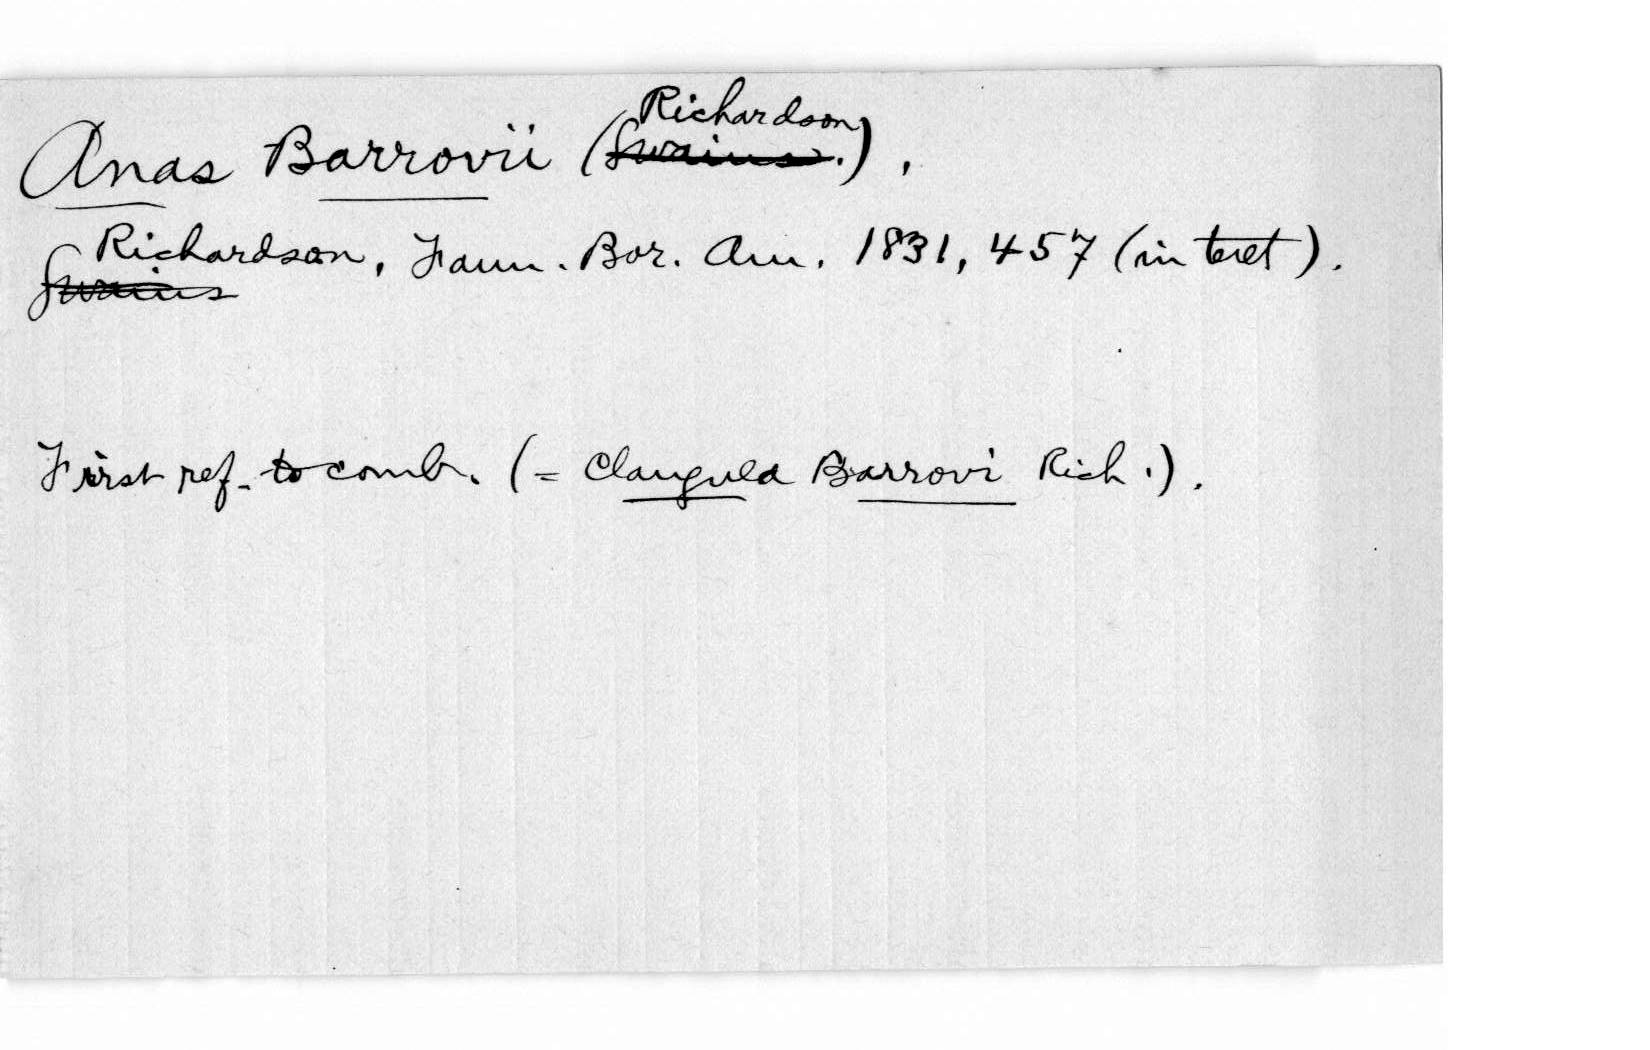 Anas Barrovii (Swains. Richardson).
Swains Richardson, Faun. Bor. Am. 1831, 457 (in text).
First ref. to comb. (= Clangula Barrovi Rich.).